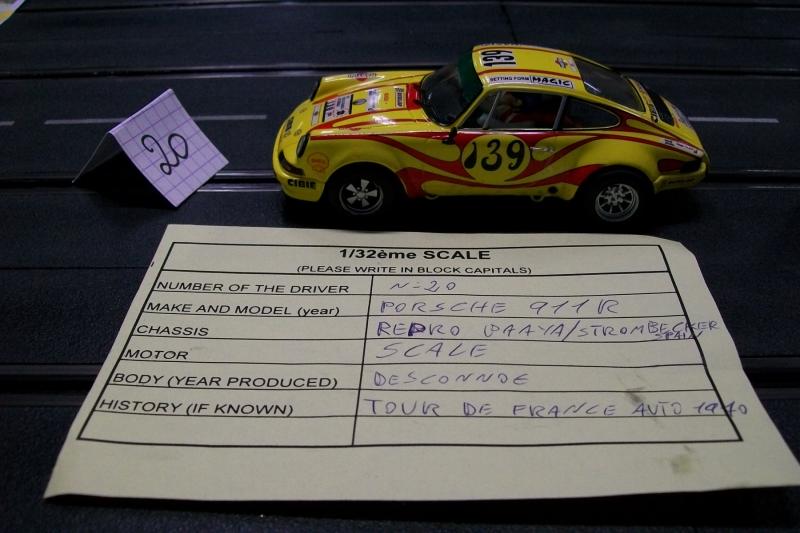 139
SETTING FORM MAGIC
20
139
CIBIE
1/32ème SCALE
(PLEASE WRITE IN BLOCK CAPITALS)
NUMBER OF THE DRIVER N-20
MAKE AND MODEL (year) PORSCHE 911R
CHASSIS REPRO PAAYA/STROMBECKER SPAIN
MOTOR SCALE
BODY (YEAR PRODUCED) DESCONNDE
HISTORY (IF KNOWN) TOUR DE FRANCE AUTO 1970